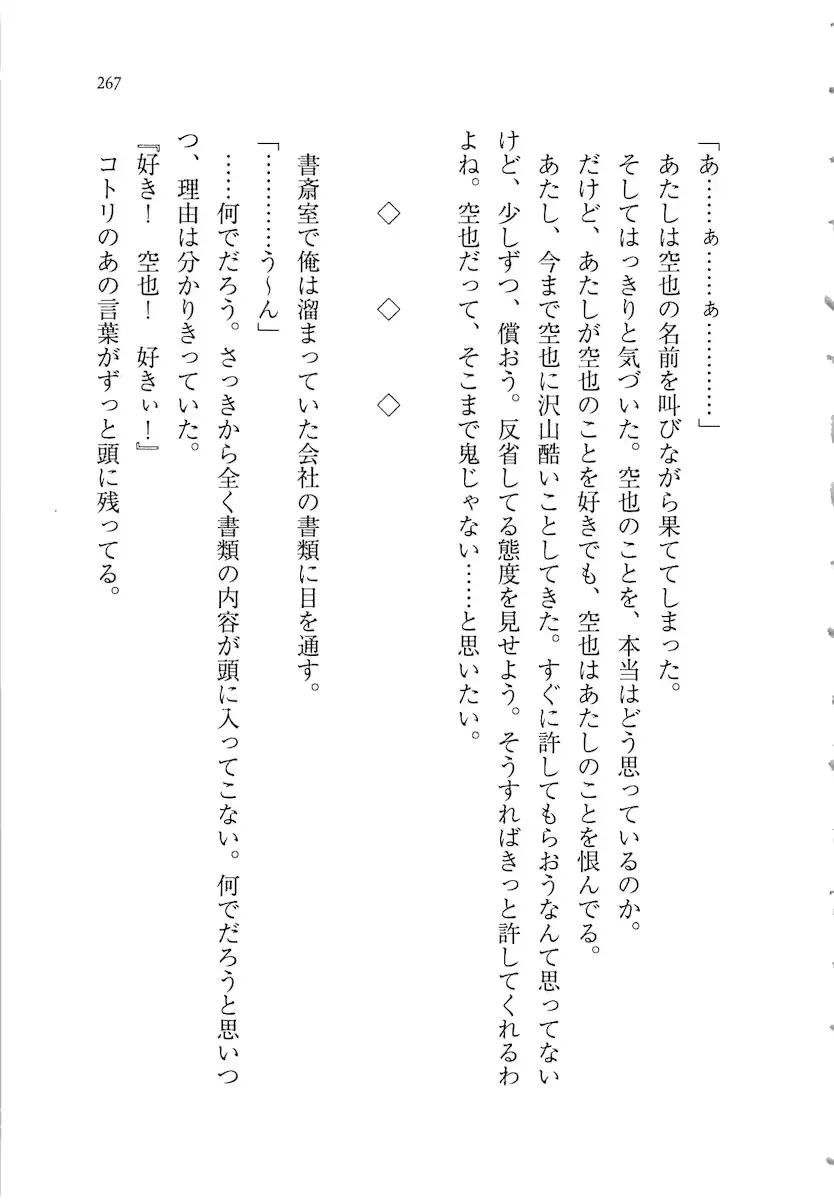 267
「あ……ぁ……ぁ…………」
あたしは空也の名前を叫びながら果ててしまった。
そしてはっきりと気づいた。空也のことを、本当はどう思っているのか。
だけど、あたしが空也のことを好きでも、空也はあたしのことを恨んでる。
あたし、今まで空也に沢山酷いことしてきた。すぐに許してもらおうなんて思ってない
けど、少しずつ、償おう。反省してる態度を見せよう。そうすればきっと許してくれるわ
よね。空也だって、そこまで鬼じゃない……と思いたい。
◇ ◇ ◇
書斎室で俺は溜まっていた会社の書類に目を通す。
「…………う～ん」
……何でだろう。さっきから全く書類の内容が頭に入ってこない。何でだろうと思いつ
つ、理由は分かりきっていた。
『好き！　空也！　好きぃ！』
コトリのあの言葉がずっと頭に残ってる。